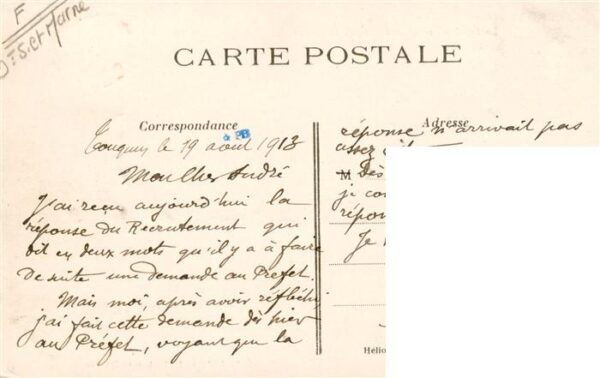 F
S. et Marne
CARTE POSTALE
Correspondance
Adresse
le 19 août 1913
Mon cher André
J'ai reçu aujourd'hui la
réponse du Recrutement qui
dit en deux mots qu'il y a à faire
de suite une demande au Préfet.
Mais moi, après avoir réfléchi
j'ai fait cette demande dès hier
au Préfet, voyant que la
réponse n'arrivait pas
assez
M Dès
je
répon
Je
Helio